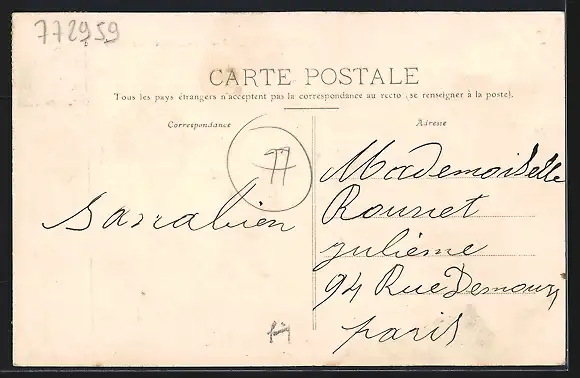 772959
CARTE POSTALE
Tous les pays étrangers n'acceptent pas la correspondance au recto (se renseigner à la poste).
Correspondance
Adresse
77
Sarrabien
Mademoiselle
Rounet
Julième
94 Rue Demours
Paris